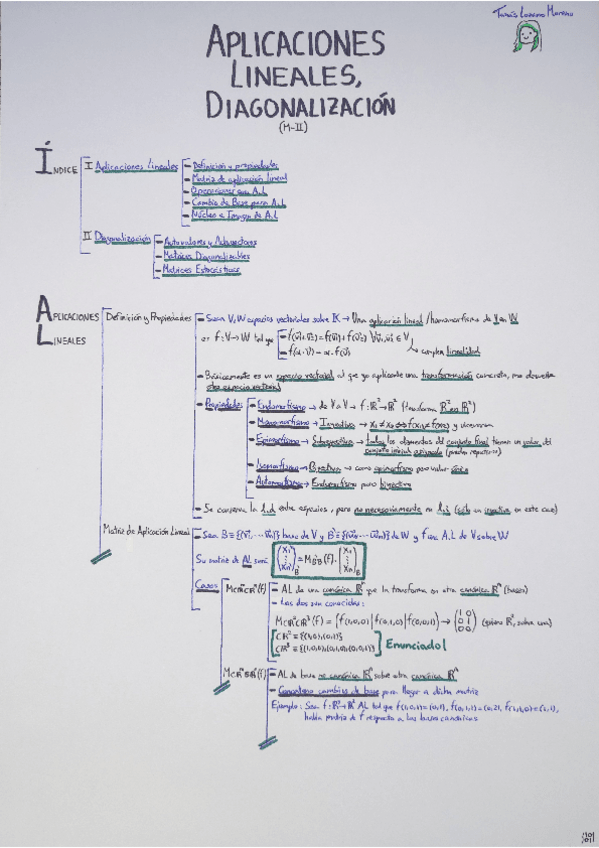 Tomás Lozano Moreno
APLICACIONES
LINEALES,
DIAGONALIZACIÓN
(M-II)
ÍNDICE
I Aplicaciones Lineales
- Definición y propiedades
- Matriz de aplicación lineal
- Operaciones con A.L
- Cambio de Base para A.L
- Núcleo e Imagen de A.L
II Diagonalización
- Autovalores y Autovectores
- Matrices Diagonalizables
- Matrices Estocásticas
APLICACIONES
LINEALES
Definición y Propiedades
- Sean V, W espacios vectoriales sobre K → Una aplicación lineal / homomorfismo de V en W
es f: V → W tal que
- f(v⃗1+v⃗2) = f(v⃗1) + f(v⃗2) ∀v⃗1, v⃗2 ∈ V
- f(α·v⃗) = α·f(v⃗)
cumplen linealidad
- Básicamente es un espacio vectorial al que yo aplicando una transformación concreta, me devuelve
otro espacio vectorial
- Propiedades
- Endomorfismo → de V a V → f: R² → R² (transforma R² en R²)
- Monomorfismo → Inyectiva → x1 ≠ x2 ⇔ f(x1) ≠ f(x2) y viceversa
- Epimorfismo → Sobreyectiva → Todos los elementos del conjunto final tienen un valor del
conjunto inicial asignado (pueden repetirse)
- Isomorfismo → Biyectiva → como epimorfismo pero valor único
- Automorfismo → Endomorfismo pero biyectivo
- Se conserva la l.d entre espacios, pero no necesariamente la l.i (solo en inyectiva en este caso)
Matriz de Aplicación Lineal
- Sean B = {(v⃗1, ... v⃗n)} base de V y B' = {(w⃗1, ... w⃗m)} de W y f una A.L de V sobre W
Su matriz de AL será:
(x1' ⋮ xn')B' = MBB'(f) · (x1 ⋮ xn)B
Casos
MCRⁿCRⁿ(f)
- AL de una canónica Rⁿ que la transforma en otra canónica Rⁿ (bases)
- Las dos son conocidas:
MCR³CR²(f) = (f(1,0,0) | f(0,1,0) | f(0,0,1)) →
CR² = {(1,0), (0,1)}
CR³ = {(1,0,0), (0,1,0), (0,0,1)}
Enunciado!
MCRⁿBRⁿ(f)
- AL de base no canónica Rⁿ sobre otra canónica Rⁿ
- Concateno cambios de base para llegar a dicha matriz
Ejemplo: Sea f: R³→R² AL tal que f(1,0,1)=(0,1), f(0,1,1)=(0,2), f(1,1,0)=(1,1),
halla matriz de f respecto a las bases canónicas